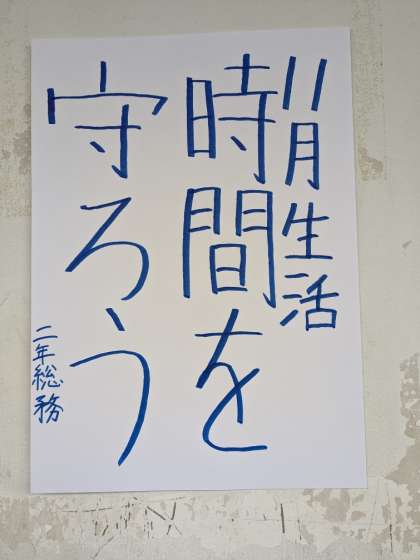 11月生活
時間を
守ろう
二年総務